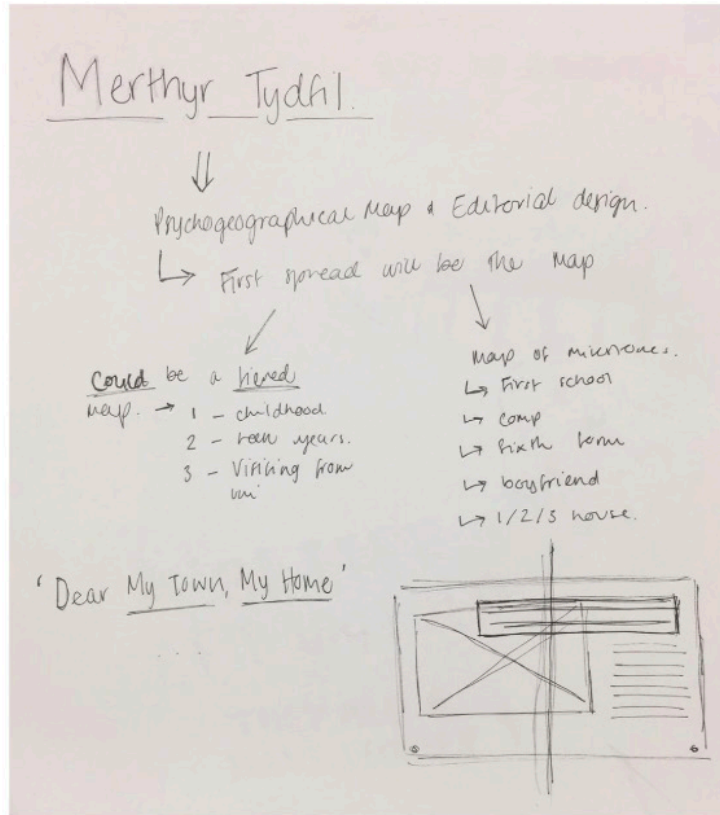 Merthyr Tydfil.
Psychogeographical Map & Editorial design.
First spread will be the map
Could be a tiered
map. → 1 - childhood.
2 - teen years.
3 - Visiting from
uni
Map of milestones.
First school
comp
sixth form
boyfriend
1/2/3 house.
'Dear My Town, My Home'
....